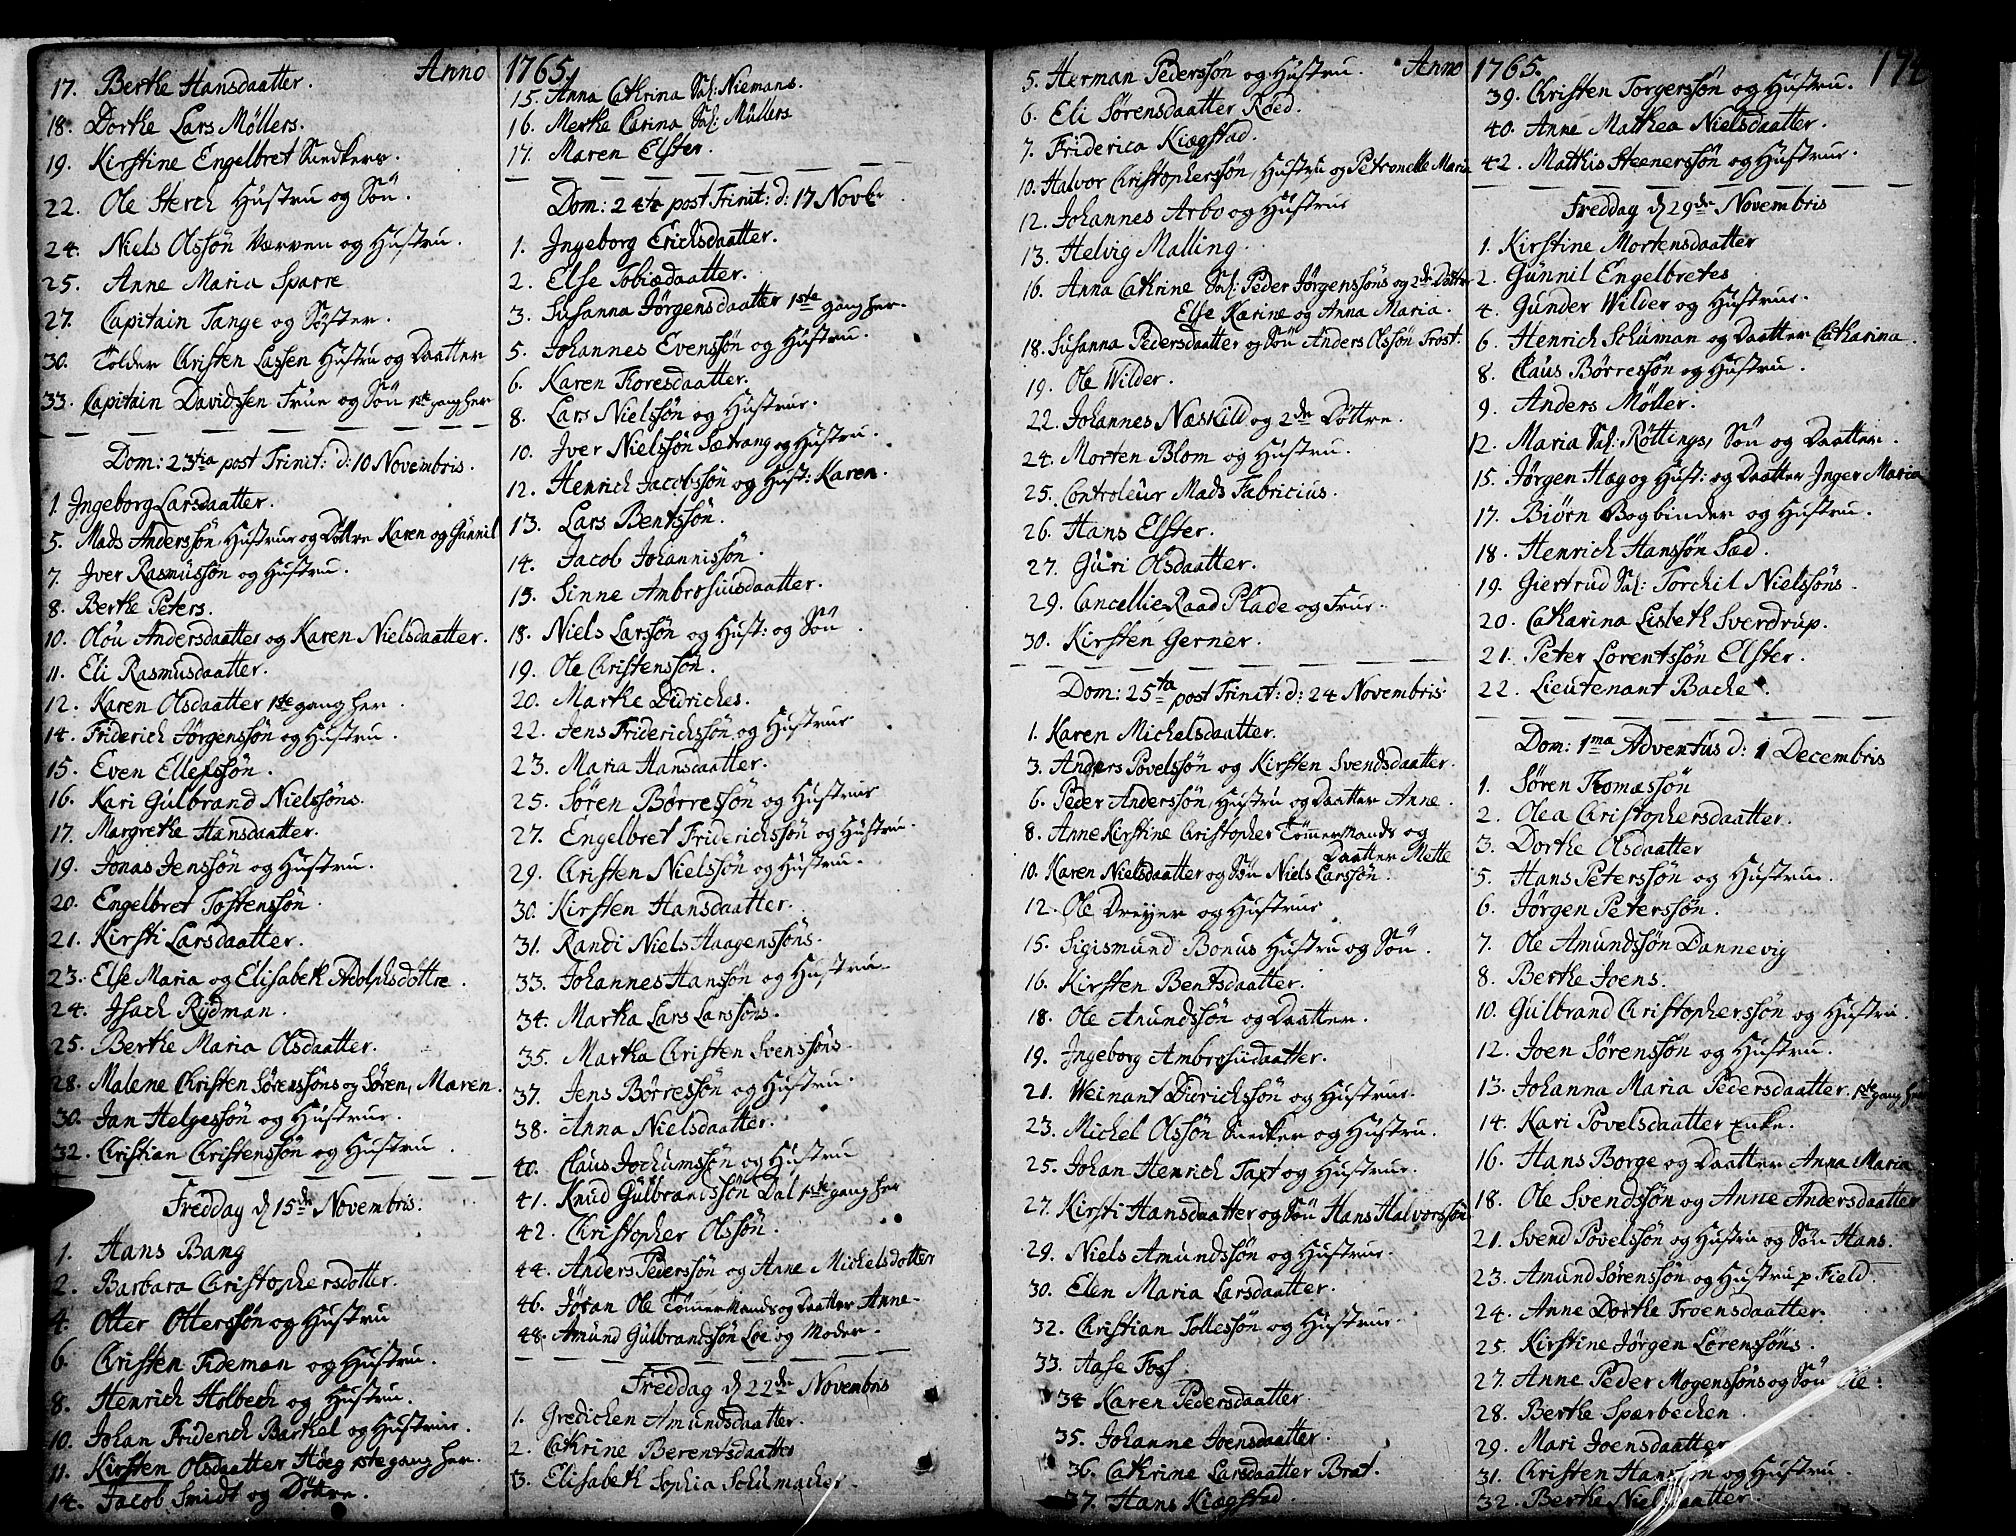 Anno 1765.
17. Berthe Hansdaatter.
18. Dorthe Lars Møllers.
19. Kirstine Engelbret Snedkers.
22. Ole Sterch Hustru og Søn.
24. Niels Olssøn Værven og Hustru.
25. Anne Maria Sparre
27. Capitain Tange og Søster.
30. Tolder Christen Lassen Hustru og Daatter
33. Capitain Davidssen Frue og Søn 1ste gang her
Dom: 23tia post Trinit: d: 10 Novembris.
1. Ingeborg Larsdaatter.
5. Mads Anderssøn, Hustrue og Døttre Karen og Gunnil
7. Iver Rasmussøn og Hustru.
8. Berthe Peters.
10. Olou Andersdaatter og Karen Nielsdaatter.
11. Eli Rasmusdaatter.
12. Karen Olsdaatter 1ste gang her
14. Friderich Jørgenssøn og Hustru.
15. Even Ellefssøn.
16. Kari Gulbrand Nielssøns.
17. Margrethe Hansdaatter.
19. Jonas Jenssøn og Hustru.
20. Engelbret Tostenssøn.
21. Kirsti Larsdaatter.
23. Else Maria og Elisabeth Adolphsdøttre.
24. Isach Rydman.
25. Berthe Maria Olsdaatter.
28. Malene Christen Sørenssøns og Søren, Maren.
30. Jan Helgessøn og Hustrue.
32. Christian Christenssøn og Hustru.
Freddag d 15de Novembris.
1. Hans Bang
2. Barbara Christophersdotter.
4. Otter Otterssøn og Hustru
6. Christen Tideman og Hustru.
8. Henrich Holbech og Hustru.
10. Johan Friderich Barthel og Hustrue.
11. Kirsten Olsdaatter Høeg 1ste gang her.
14. Jacob Smidt og Døttre.
15. Anna Cathrina Sal: Niemans.
16. Merthe Carina Sal: Müllers
17. Maren Elster.
Dom: 24te post Trinit: d: 17 Novbr.
1. Ingeborg Erichsdaatter.
2. Else Tobiædaatter.
3. Susanna Jørgensdaatter 1ste gang her.
5. Johannes Evenssøn og Hustru.
6. Karen Thoresdaatter.
8. Lars Nielssøn og Hustrue.
10. Iver Nielssøn Sætrang og Hustru.
12. Henrich Jacobssøn og Hust: Karen.
13. Lars Bentssøn.
14. Jacob Johannissøn.
15. Sinne Ambrosiusdaatter.
18. Niels Larssøn og Hust: og Søn
19. Ole Christenssøn.
20. Marthe Didriches.
22. Jens Friderichssøn og Hustrue
23. Maria Hansdaatter.
25. Søren Børressøn og Hustrue
27. Engelbret Friderichssøn og Hustru.
29. Christen Nielssøn og Hustru.
30. Kirsten Hansdaatter.
31. Randi Niels Haagenssøns.
33. Johannes Hanssøn og Hustru
34. Martha Lars Larssøns.
35. Martha Christen Svenssøns.
37. Jens Børressøn og Hustru.
38. Anna Nielsdaatter.
40. Claus Jochumssøn og Hustru
41. Knud Gulbrandssøn Dal 1ste gang her
42. Christopher Olssøn.
44. Anders Pederssøn og Anne Michelsdotter
46. Jøran Ole Tømmermands og Daatter Anne.
48. Amund Gulbrandssøn Loe og Moder.
Freddag d 22de Novembris
1. Gredichen Amundsdaatter.
2. Cathrine Berentsdaatter
3. Elisabeth Sophia Schumacher.
Anno 1765. 174
5. Herman Pederssøn og Hustru.
6. Eli Sørensdaatter Røed.
7. Friderica Kiøgstad.
10. Halvor Christopherssøn, Hustru og Petronelle Maria
12. Johannes Arbo og Hustrue
13. Helvig Malling.
16. Anna Cathrine Sal: Peder Jørgenssøns og 2de Døttre
Else Karine og Anna Maria.
18. Susanna Pedersdaatter og Søn Anders Olssøn Frost.
19. Ole Wilder.
22. Johannes Næskild og 2de Døttre.
24. Morten Blom og Hustru.
25. Controleur Mads Fabricius.
26. Hans Elster.
27. Guri Olsdaatter.
29. CancellieRaad Plade og Frue.
30. Kirsten Gerner.
Dom: 25ta post Trinit: d: 24 Novembris.
1. Karen Michelsdaatter.
3. Anders Povelssøn og Kirsten Svendsdaatter.
6. Peder Anderssøn, Hustru og Daatter Anne.
8. Anne Kirstine Christopher Tømmermands og
Daatter Mette
10. Karen Nielsdaatter og Søn Niels Larssøn.
12. Ole Dreyer og Hustrue
15. Sigismund Bonus Hustru og Søn.
16. Kirsten Bentsdaatter.
18. Ole Anundssøn og Daatter.
19. Ingeborg Ambrosiidaatter.
21. Weinant Didrichssøn og Hustrue.
23. Michel Olssøn Snedker og Hustru.
25. Johan Henrich Taxt og Hustrue.
27. Kirsti Hansdaatter og Søn Hans Halvorssøn
29. Niels Amundssøn og Hustrue.
30. Elen Maria Larsdaatter.
32. Christian Tollessøn og Hustrue.
33. Aase Foss.
34 Karen Pedersdaatter
35. Johanne Joensdaatter.
36. Cathrine Larsdaatter Brat.
37. Hans Kiøgstad.
39. Christen Torgerssøn og Hustru.
40. Anne Mathea Nielsdaatter.
42. Mathis Steenerssøn og Hustrue.
Freddag d 29de Novembris
1. Kirstine Mortensdaatter
2. Gunnil Engelbretes
4. Gunder Wilder og Hustrue.
6. Henrich Schuman og Daatter Catharina.
8. Claus Børressøn og Hustru.
9. Anders Møller.
12. Maria Sal: Røttings, Søn og Daatter.
15. Jørgen Hæg og Hust: og Daatter Inger Maria
17. Biørn Bogbinder og Hustru.
18. Henrich Hanssøn Sæd.
19. Giertrud Sal: Torchil Nielssøns.
20. Catharina Lisbeth Sverdrup.
21. Peter Lorentssøn Elster.
22. Lieutenant Bache.
Dom: 1ma Adventus d: 1 Decembris
1. Søren Thomæssøn
2. Olea Christophersdaatter.
3. Dorthe Olsdaatter
5. Hans Peterssøn og Hustrue.
6. Jørgen Peterssøn.
7. Ole Amundssøn Dannevig
8. Berthe Joens.
10. Gulbrand Christopherssøn og Hustru.
12. Joen Sørenssøn og Hustru.
13. Johanna Maria Pedersdaatter. 1ste gang her
14. Kari Povelsdaatter Enke.
16. Hans Borge og Daatter Anna Maria
18. Ole Svendssøn og Anne Andersdaatter
21. Svend Povelssøn og Hustru og Søn Hans.
23. Amund Sørenssøn og Hustru p Field.
24. Anne Dorthe Froensdaatter.
25. Kirstine Jørgen Lørenssøns.
27. Anne Peder Mogenssøns og Søn Ole.
28. Berthe Spærbechen.
29. Mari Joensdaatter
31. Christen Hanssøn og Hustru.
32. Berthe Nielsdaatter.